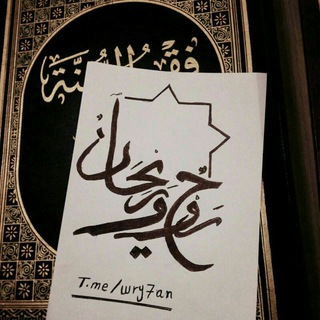 فقه السُّنَّة
رَوْحٌ وريحان
T.me/wry7an